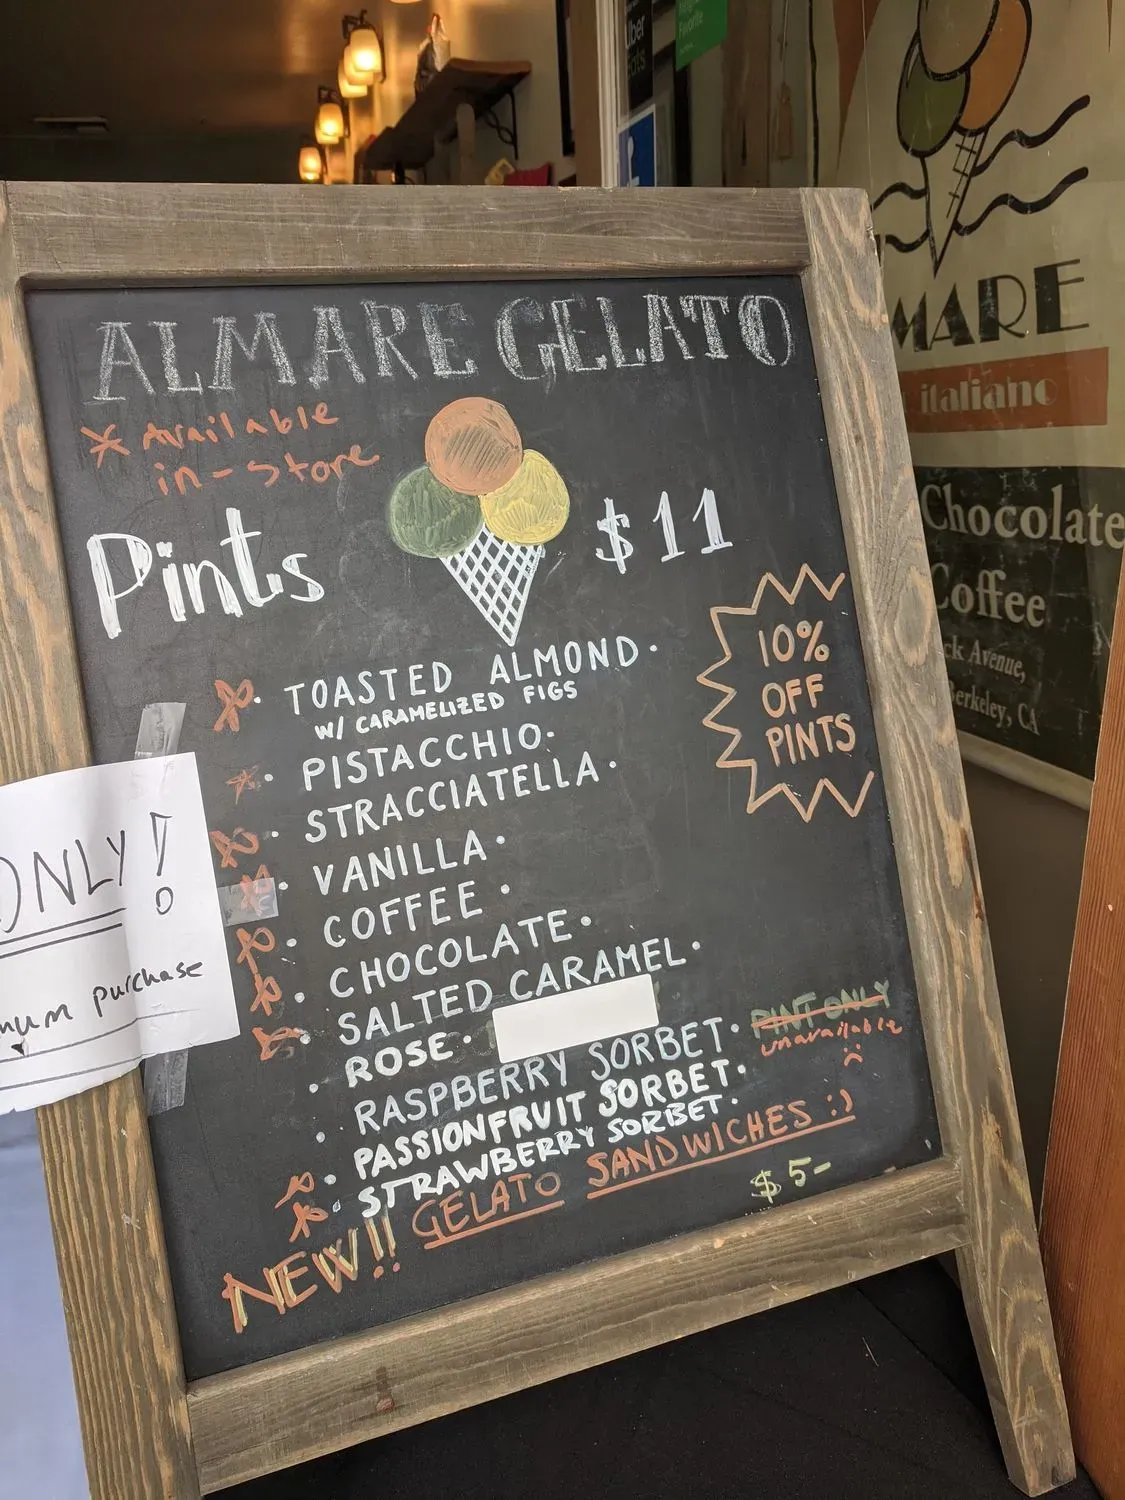 Uber
Eats
Favorite
ALMARE GELATO
* Available
in-store
Pints
$11
* • TOASTED ALMOND •
W/ CARAMELIZED FIGS
* • PISTACCHIO •
* • STRACCIATELLA •
* • VANILLA •
* • COFFEE •
* • CHOCOLATE •
* • SALTED CARAMEL •
• ROSE •
• RASPBERRY SORBET • PINT ONLY
unavailable :(
* • PASSIONFRUIT SORBET •
* • STRAWBERRY SORBET •
NEW!! GELATO SANDWICHES :)
$5-
10%
OFF
PINTS
ONLY!
mum purchase
MARE
italiano
Chocolate
Coffee
ck Avenue,
Berkeley, CA